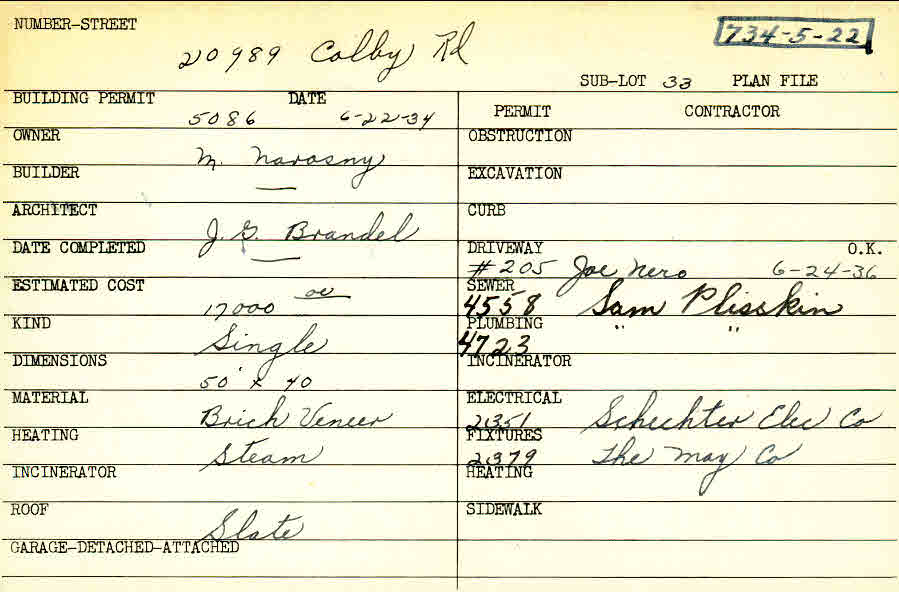 NUMBER-STREET
734-5-22
20989 Colby Rd
SUB-LOT 33 PLAN FILE
BUILDING PERMIT DATE
5086 6-22-34
PERMIT CONTRACTOR
OWNER
M. Narosny
OBSTRUCTION
BUILDER
—
EXCAVATION
ARCHITECT
J. G. Brandel
CURB
DATE COMPLETED
—
DRIVEWAY O.K.
#205 Joe Nero 6-24-36
ESTIMATED COST
17000 00
SEWER
4558 Sam Plisskin
KIND
Single
PLUMBING
4723 " "
DIMENSIONS
50' x 40
INCINERATOR
MATERIAL
Brick Veneer
ELECTRICAL
2351 Schechter Elec Co
HEATING
Steam
FIXTURES
2379 The May Co
INCINERATOR
HEATING
ROOF
Slate
SIDEWALK
GARAGE-DETACHED-ATTACHED